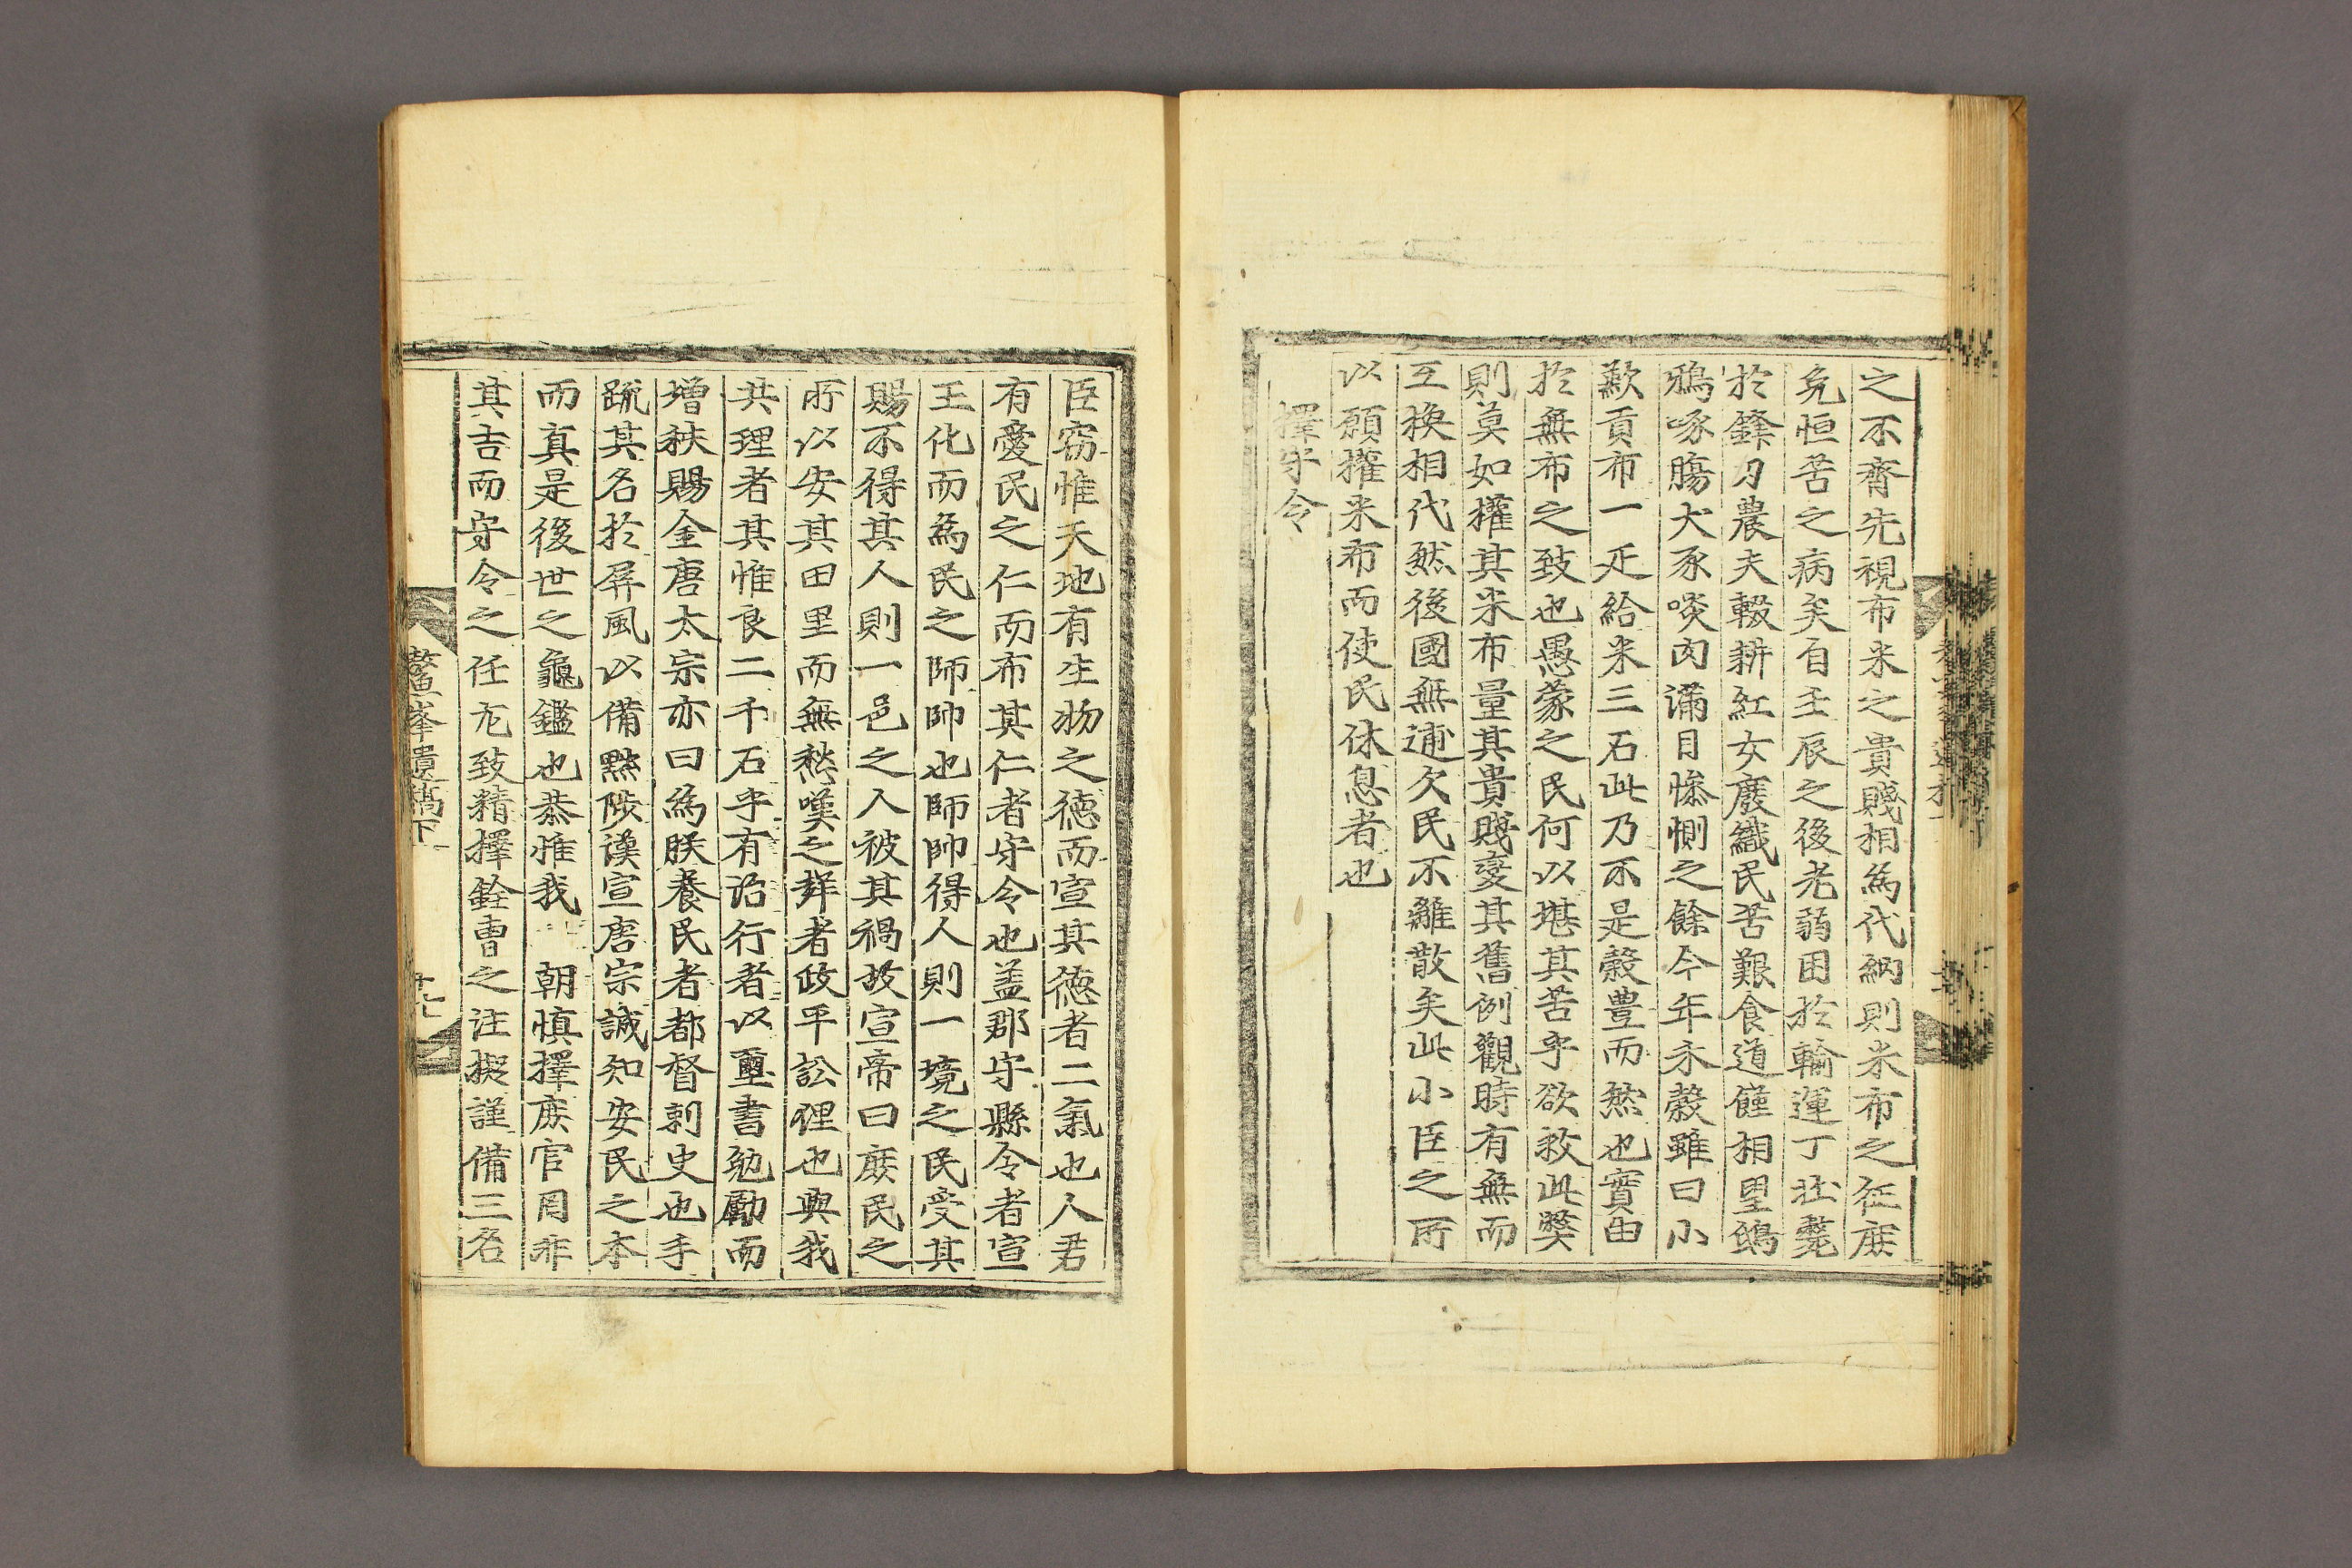 之不齊先視布米之貴賤相爲代納則米布之征庶
免恒苦之病矣自壬辰之後老弱困於輸運丁壯斃
於鋒刃農夫輟耕紅女廢織民苦艱食道饉相望鴟
鴉啄腸犬豕啖肉滿目慘惻之餘今年禾穀雖曰小
歉貢布一疋給米三石此乃不是穀豊而然也實由
於無布之致也愚蒙之民何以堪其苦乎欲救此獘
則莫如權其米布量其貴賤變其舊例觀時有無而
互換相代然後國無逋欠民不離散矣此小臣之所
以願權米布而使民休息者也
擇守令
臣窃惟天地有生物之德而宣其德者二氣也人君
有愛民之仁而布其仁者守令也盖郡守縣令者宣
王化而爲民之師帥也師帥得人則一境之民受其
賜不得其人則一邑之人被其禍故宣帝曰庶民之
所以安其田里而無愁嘆之聲者政平訟理也與我
共理者其惟良二千石乎有治行者以璽書勉勵而
增秩賜金唐太宗亦曰爲朕養民者都督刺史也手
疏其名於屛風以備黜陟漢宣唐宗誠知安民之本
而真是後世之龜鑑也恭惟我 朝愼擇庶官罔非
其吉而守令之任尤致精擇銓曹之注擬謹備三名
鰲峯遺稿下
十七